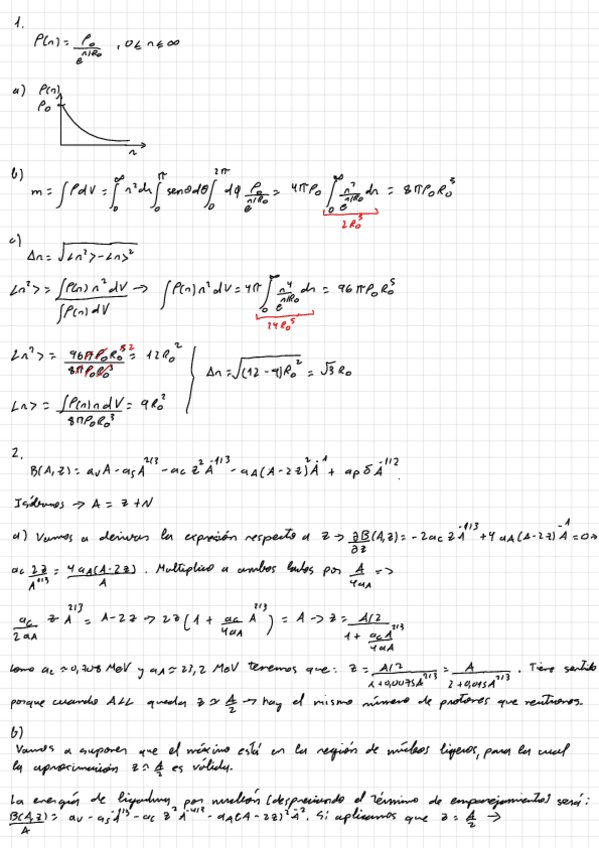 1.
P(r) = P₀/e^(r/R₀) , 0 ≤ r ≤ ∞
a) P(r)
P₀
r
b)
m = ∫ρdV = ∫₀^∞ r²dr ∫₀^π senθdθ ∫₀^2π dφ P₀/e^(r/R₀) = 4πP₀ ∫₀^∞ r²/e^(r/R₀) dr = 8πP₀R₀³
2R₀³
c)
Δr = √(<r²> - <r>²)
<r²> = ∫P(r) r² dV / ∫P(r) dV → ∫P(r) r² dV = 4π ∫₀^∞ r⁴/e^(r/R₀) dr = 96πP₀R₀⁵
24R₀⁵
<r²> = 96πP₀R₀⁵/8πP₀R₀³ = 12R₀²
Δr = √((12-9)R₀²) = √3 R₀
<r> = ∫P(r) r dV / 8πP₀R₀³ = 9R₀²
2.
B(A,Z) = a_V A - a_S A^(2/3) - a_C Z² A^(-1/3) - a_A (A-2Z)² A^(-1) + a_P δ A^(-1/2)
Isóbaros → A = Z + N
a) Vamos a derivar la expresión respecto a Z → ∂B(A,Z)/∂Z = -2a_C Z A^(-1/3) + 4a_A (A-2Z) A^(-1) = 0 →
a_C 2Z/A^(1/3) = 4a_A(A-2Z)/A . Multiplico a ambos lados por A/4a_A =>
a_C/2a_A Z A^(2/3) = A-2Z → 2Z (1 + a_C/4a_A A^(2/3)) = A → Z = (A/2)/(1 + a_C A^(2/3)/4a_A)
Como a_C ≈ 0,708 MeV y a_A ≈ 23,2 MeV tenemos que: Z = (A/2)/(1+0,0075A^(2/3)) = A/(2+0,015A^(2/3)) . Tiene sentido
porque cuando A↓↓ queda Z ≈ A/2 → hay el mismo número de protones que neutrones.
b)
Vamos a suponer que el máximo está en la región de núcleos ligeros, para la cual
la aproximación Z ≈ A/2 es válida.
La energía de ligadura por nucleón (despreciando el término de emparejamiento) será:
B(A,Z)/A = a_V - a_S A^(-1/3) - a_C Z² A^(-4/3) - a_A (A-2Z)² A^(-2). Si aplicamos que Z = A/2 →